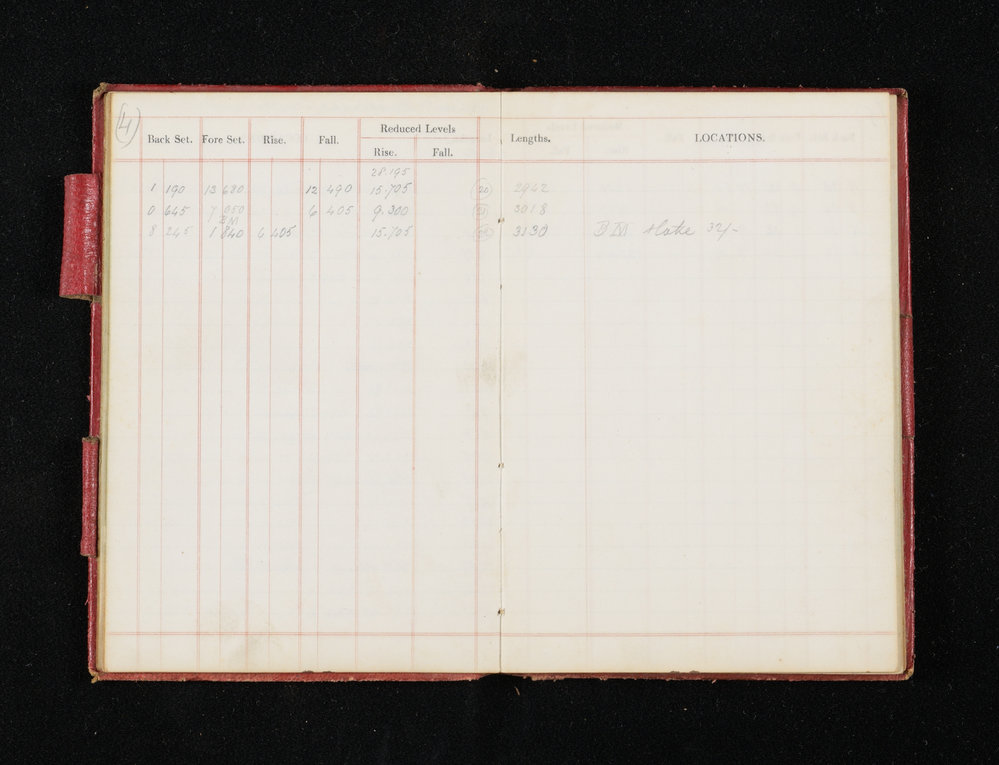 (4)
Reduced Levels
Back Set. Fore Set. Rise. Fall. Rise. Fall. Lengths. LOCATIONS.
28.195
1 190 13 680 12 490 15.705 (20) 2942
0 645 7 050 6 405 9.300 3018
BM
8 245 1 840 6 405 15.705 3130 BM stake 32/-